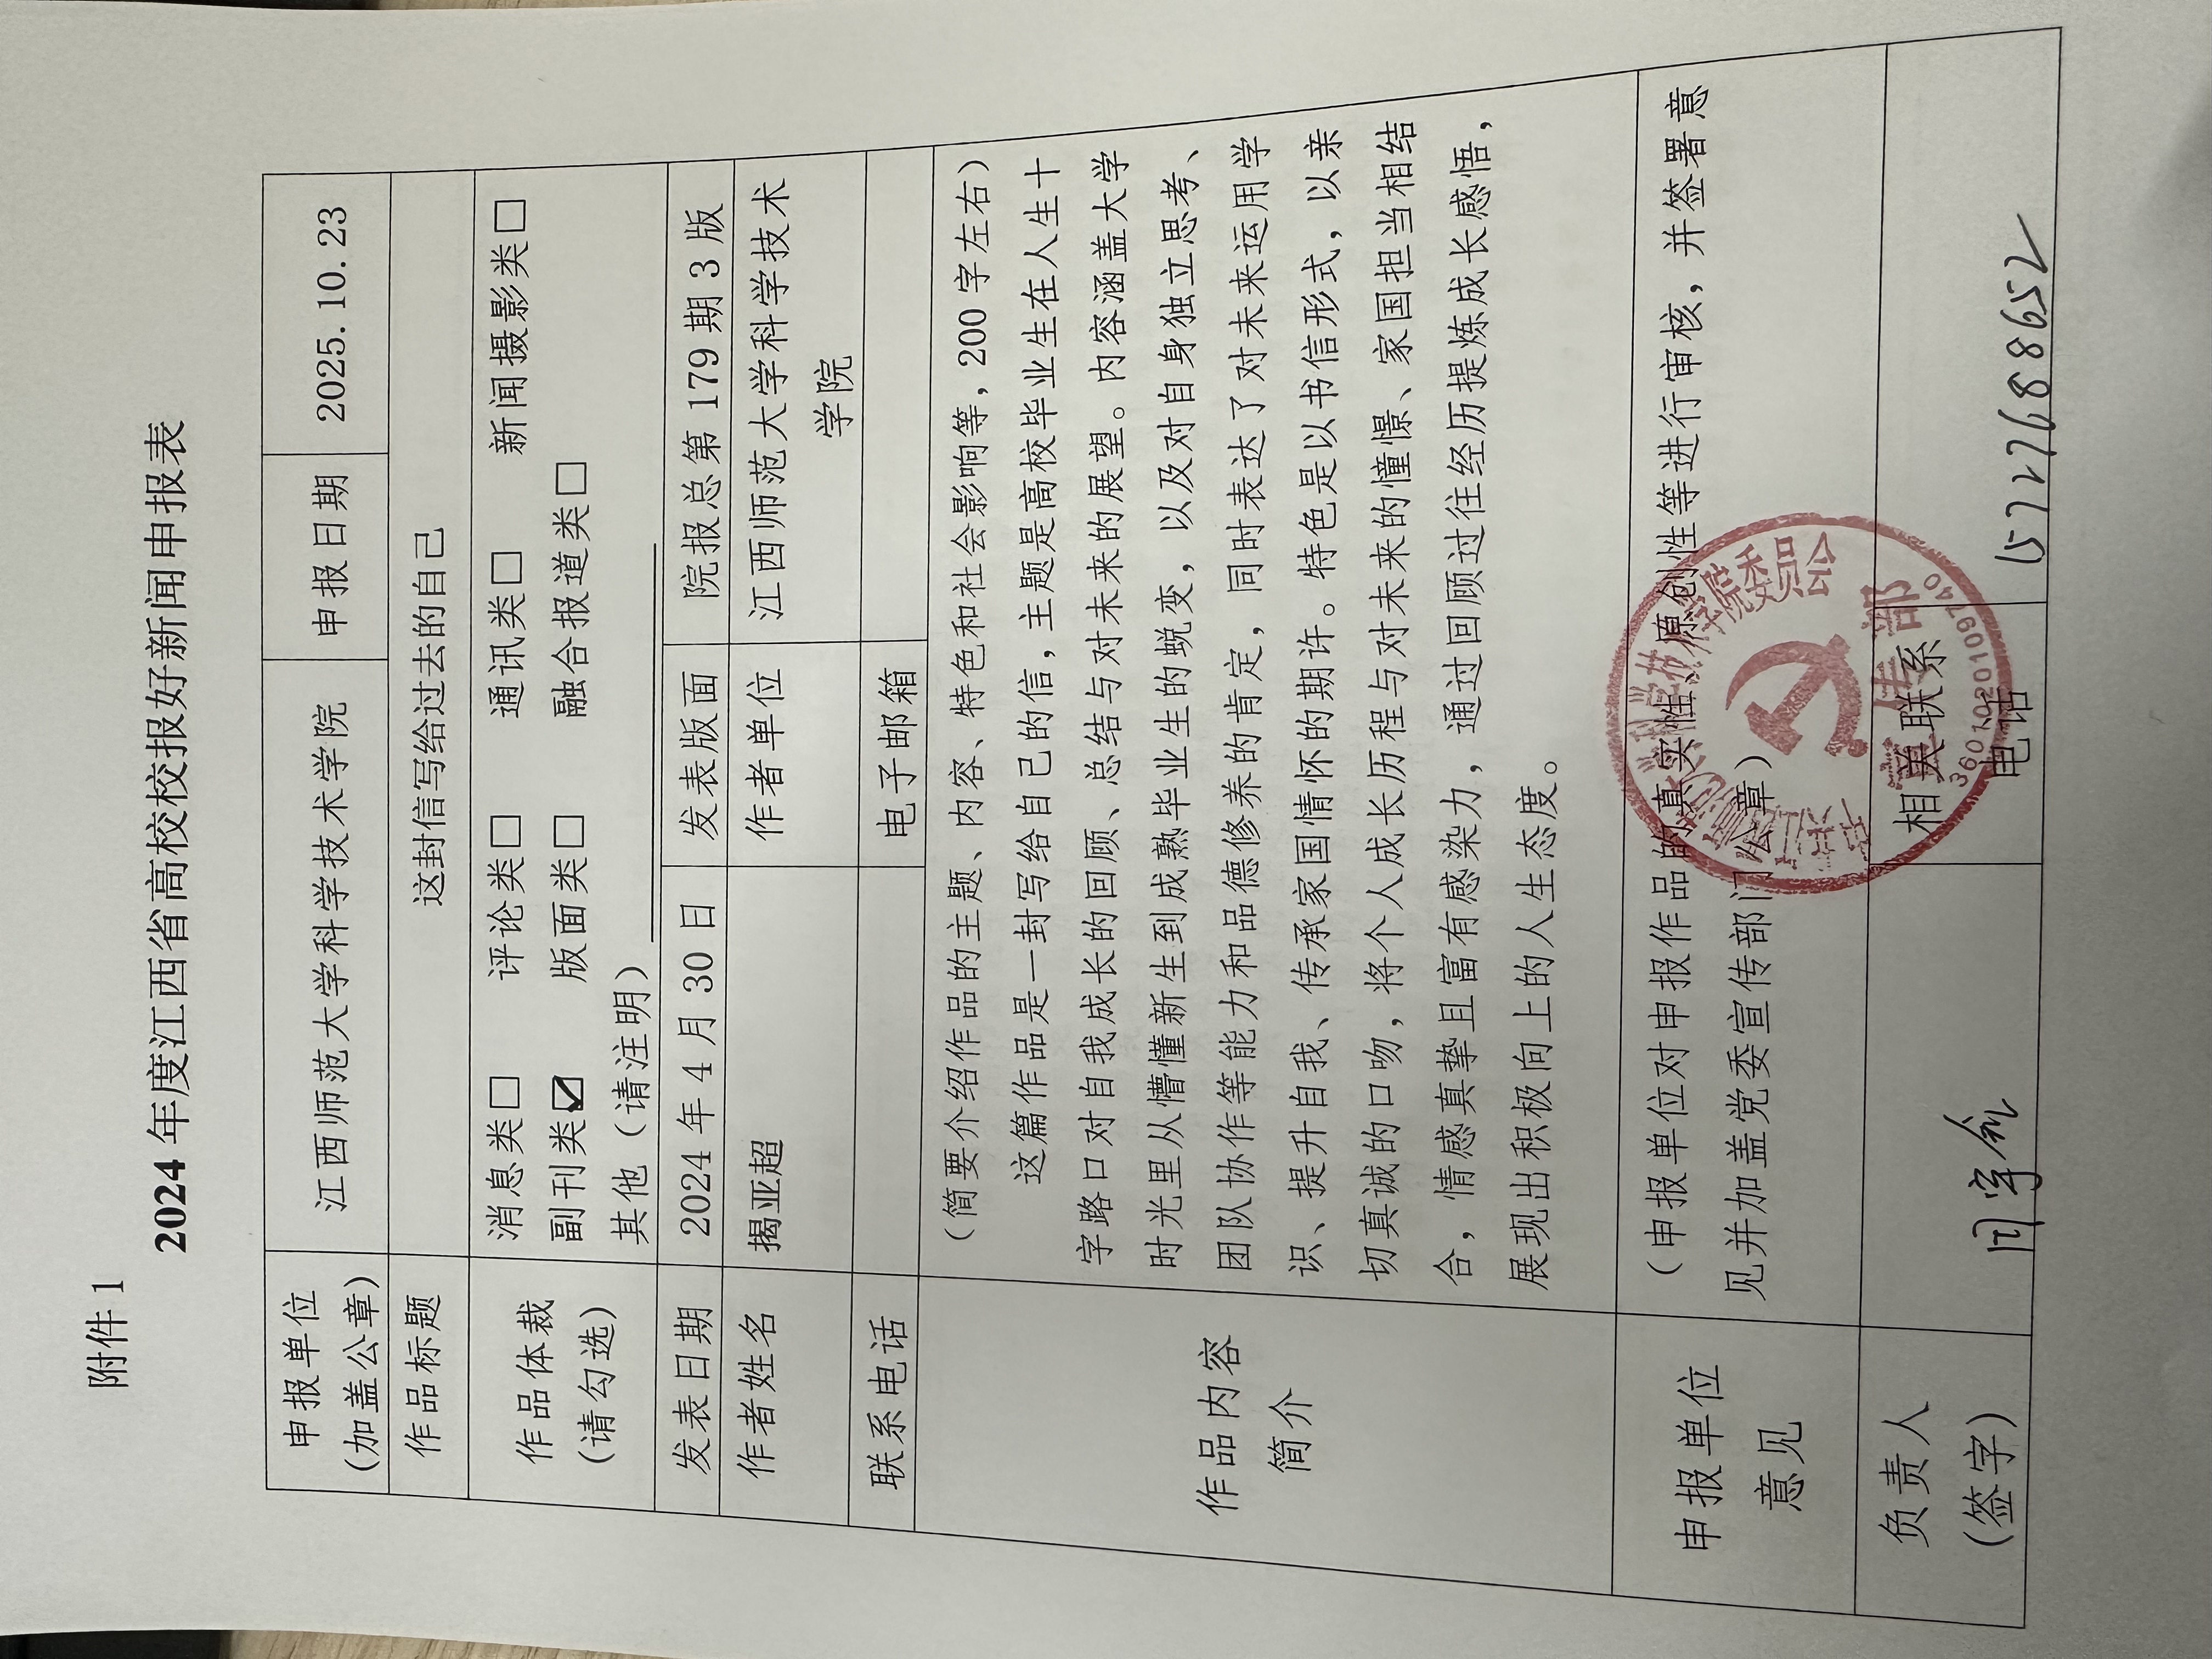 附件 1
2024 年度江西省高校校报好新闻申报表
申报单位
（加盖公章）
江西师范大学科学技术学院
申报日期
2025.10.23
作品标题
这封信写给过去的自己
作品体裁
（请勾选）
消息类□ 评论类□ 通讯类□ 新闻摄影类□
副刊类☑ 版面类□ 融合报道类□
其他（请注明）
发表日期
2024 年 4 月 30 日
发表版面
院报总第 179 期 3 版
作者姓名
揭亚超
作者单位
江西师范大学科学技术
学院
联系电话
电子邮箱
作品内容
简介
（简要介绍作品的主题、内容、特色和社会影响等，200 字左右）
这篇作品是一封写给自己的信，主题是高校毕业生在人生十
字路口对自我成长的回顾、总结与对未来的展望。内容涵盖大学
时光里从懵懂新生到成熟毕业生的蜕变，以及对自身独立思考、
团队协作等能力和品德修养的肯定，同时表达了对未来运用学
识、提升自我、传承家国情怀的期许。特色是以书信形式，以亲
切真诚的口吻，将个人成长历程与对未来的憧憬、家国担当相结
合，情感真挚且富有感染力，通过回顾过往经历提炼成长感悟，
展现出积极向上的人生态度。
申报单位
意见
（申报单位对申报作品的真实性、原创性等进行审核，并签署意
见并加盖党委宣传部门公章）
宣传部
3601020109740
负责人
（签字）
相关联系
电话
15727688652